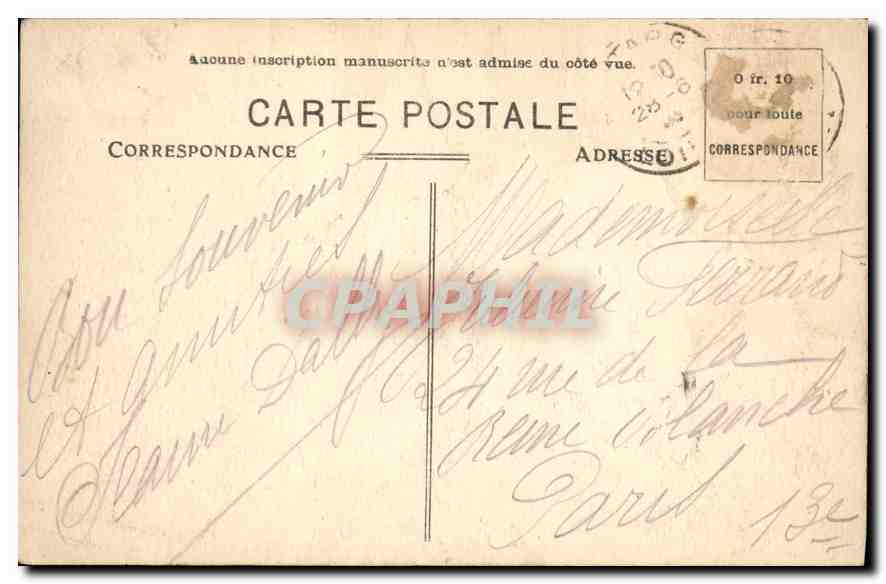 Aucune inscription manuscrite n'est admise du côté vue.
CARTE POSTALE
CORRESPONDANCE
ADRESSE
0 fr. 10
pour toute
CORRESPONDANCE
Bon Souvenir
et amitiés
Jeanne
Mademoiselle
Ferrand
24 rue de la
Reine Blanche
Paris 13e
CPAPHIL